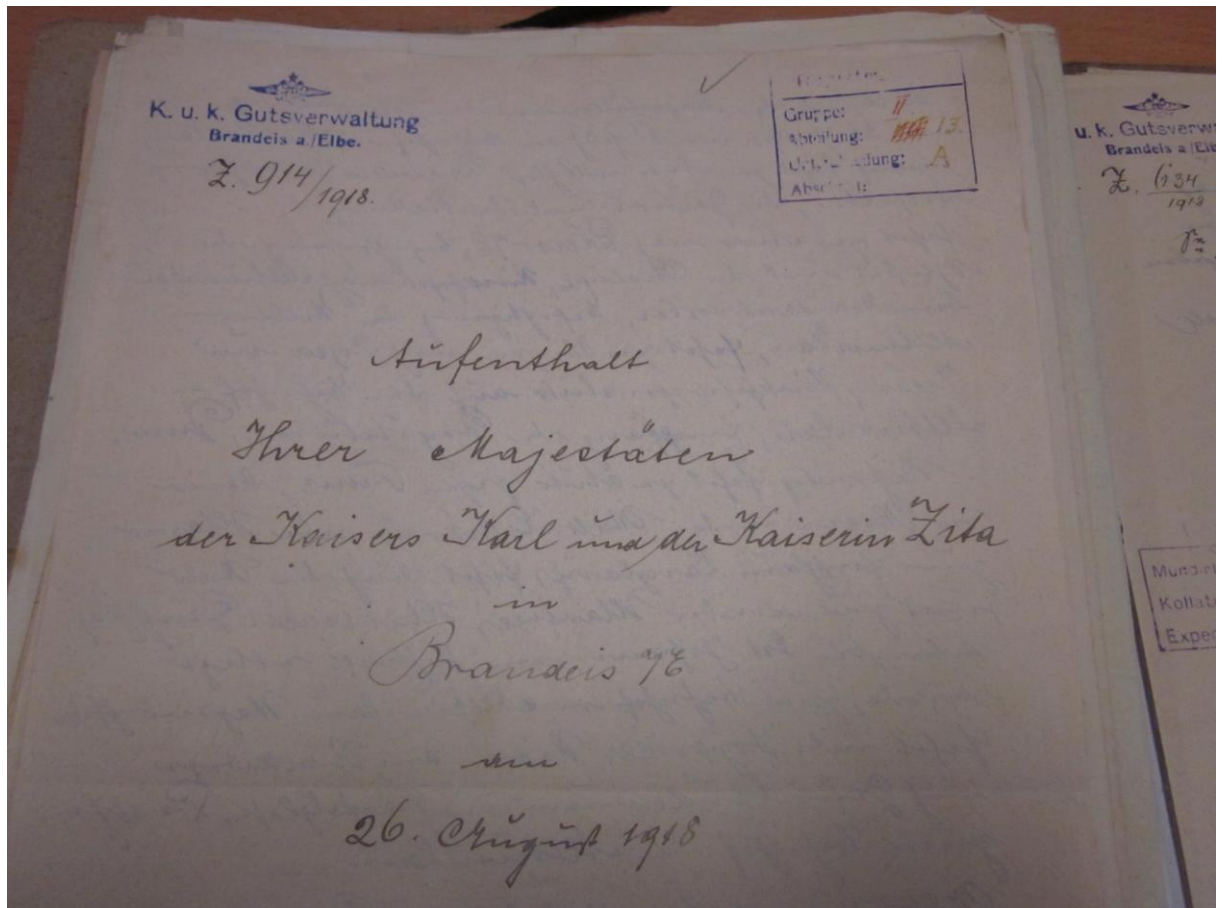 K. u. k. Gutsverwaltung
Brandeis a./Elbe.
Z. 914/1918.
Gruppe: II
Abteilung: 13.
Unterabteilung: A
Aufenthalt
Ihrer Majestäten
der Kaisers Karl und der Kaiserin Zita
in
Brandeis a/E
am
26. August 1918
u. k. Gutsverw
Brandeis a/Elb
Z. 634
1918
Mundi
Kollat
Exped